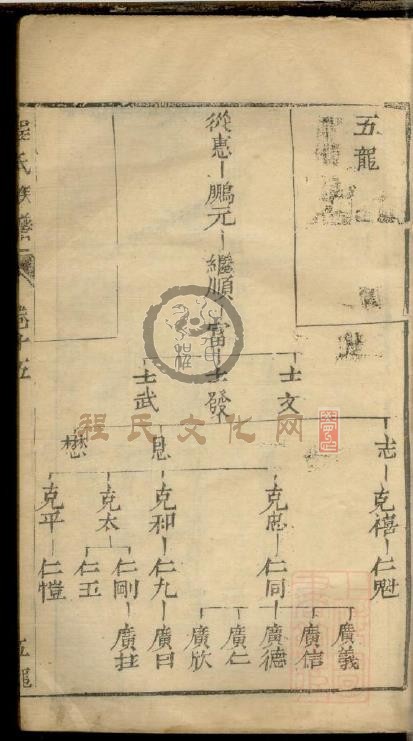 五龍
從惠 鵬元 繼順 富
士文 士發 士武
志 息 懋
克禧 克忠 克和 克太 克平
仁魁 仁同 仁九 仁剛 仁玉 仁愷
廣義 廣信 廣德 廣仁 廣欣 廣曰 廣柱
程氏族譜
卷十五
五龍
程氏文化网